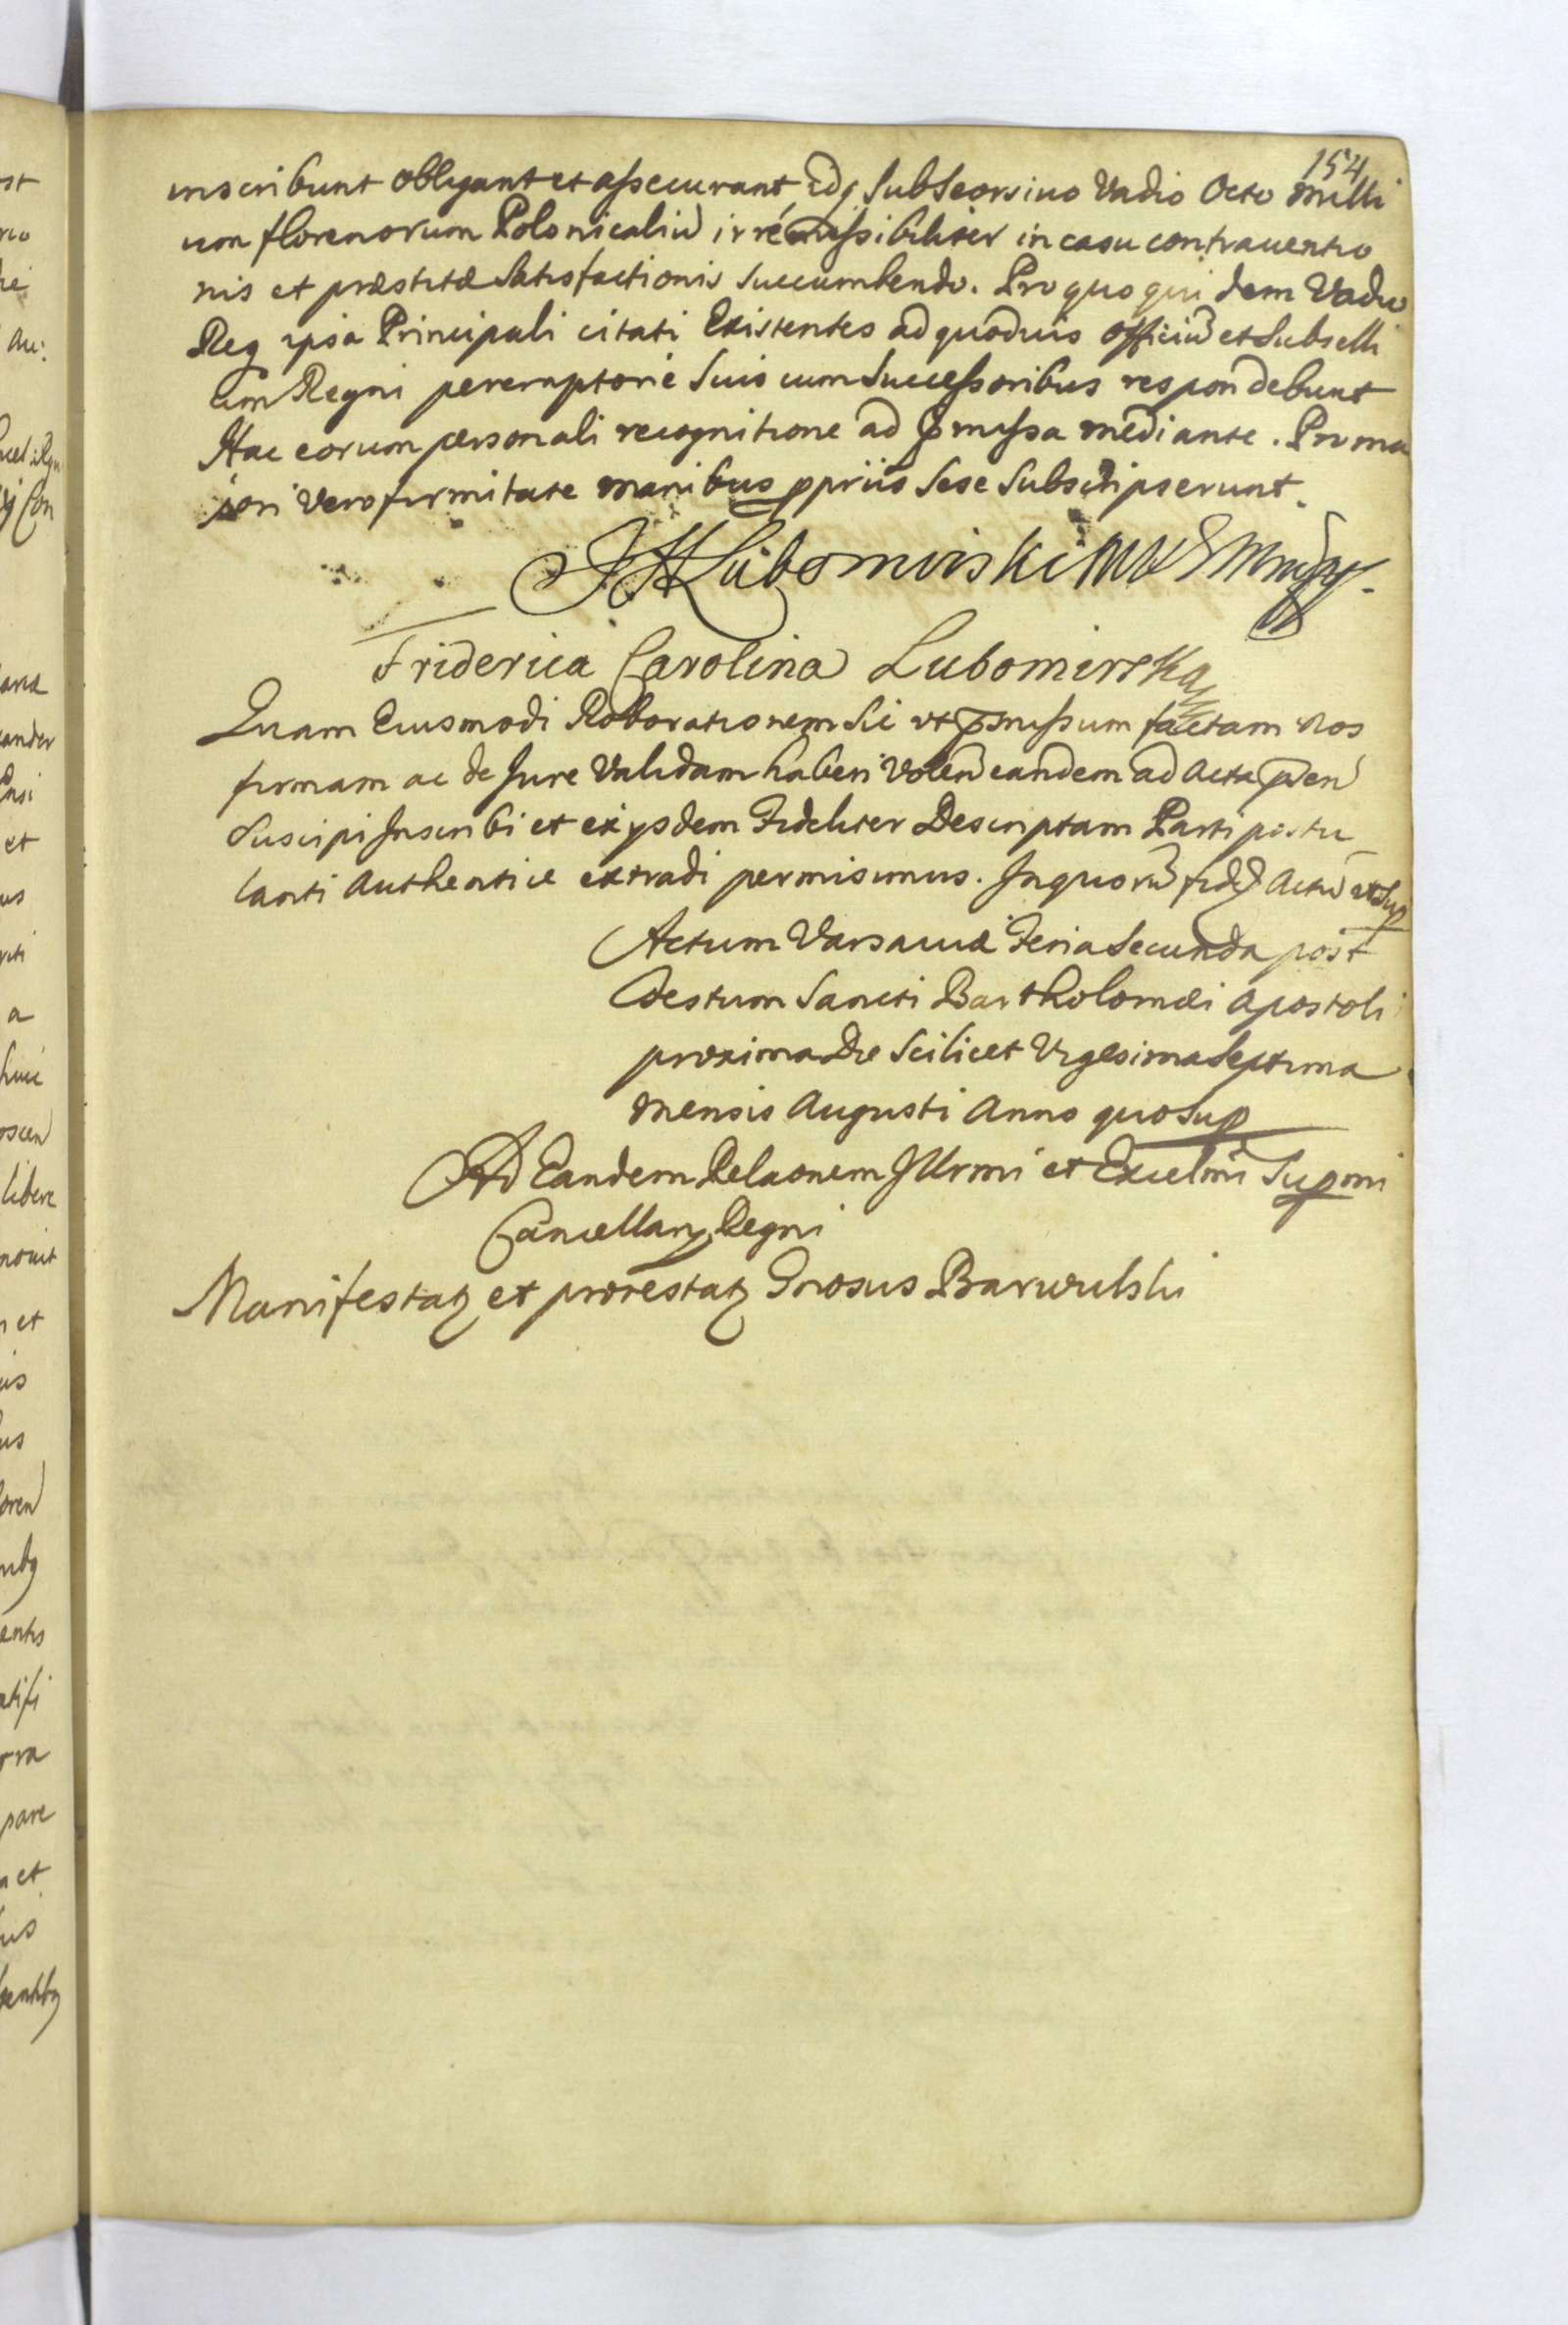 154
inscribunt obligant et assecurant, idq Sub Seorsivo Vadio Octo milli
um florenorum Polonicaliũ irremissibiliter in casu contrauentio
nis et præstitæ Satisfactionis Succumbendo. Pro quo quidem Vadio
Req ipsa Principali citati Existentes ad quoduis officiũ et Subselli
um Regni peremptorie Suis cum Successoribus respondebunt
Hac eorum personali recognitione ad pmissa mediante. Pro ma
iori Vero firmitate manibus ppriis Sese Subscripserunt.
Lubomirski
Friderica Carolina Lubomirska
Quam Eiusmodi Roborationem Sic vt pmissum factam nos
firmam ac de Jure Validam haberi Volen eandem ad Acta pren
Suscipi Inscribi et ex ijsdem Fideliter Descriptam Parti postu
lanti Authentice extradi permisimus. In quorũ fidẽ Actũ ut Sup
Actum Varsauiæ Feria Secunda post
Festum Sancti Bartholomæi Apostoli
proxima Die Scilicet Vigesima Septima
mensis Augusti Anno quo Sup
Ad Eandem Relaonem Illrmi et Excelmi Supmi
Cancellarij Regni
Manifestatq et protestatq Gnosus Barwulski